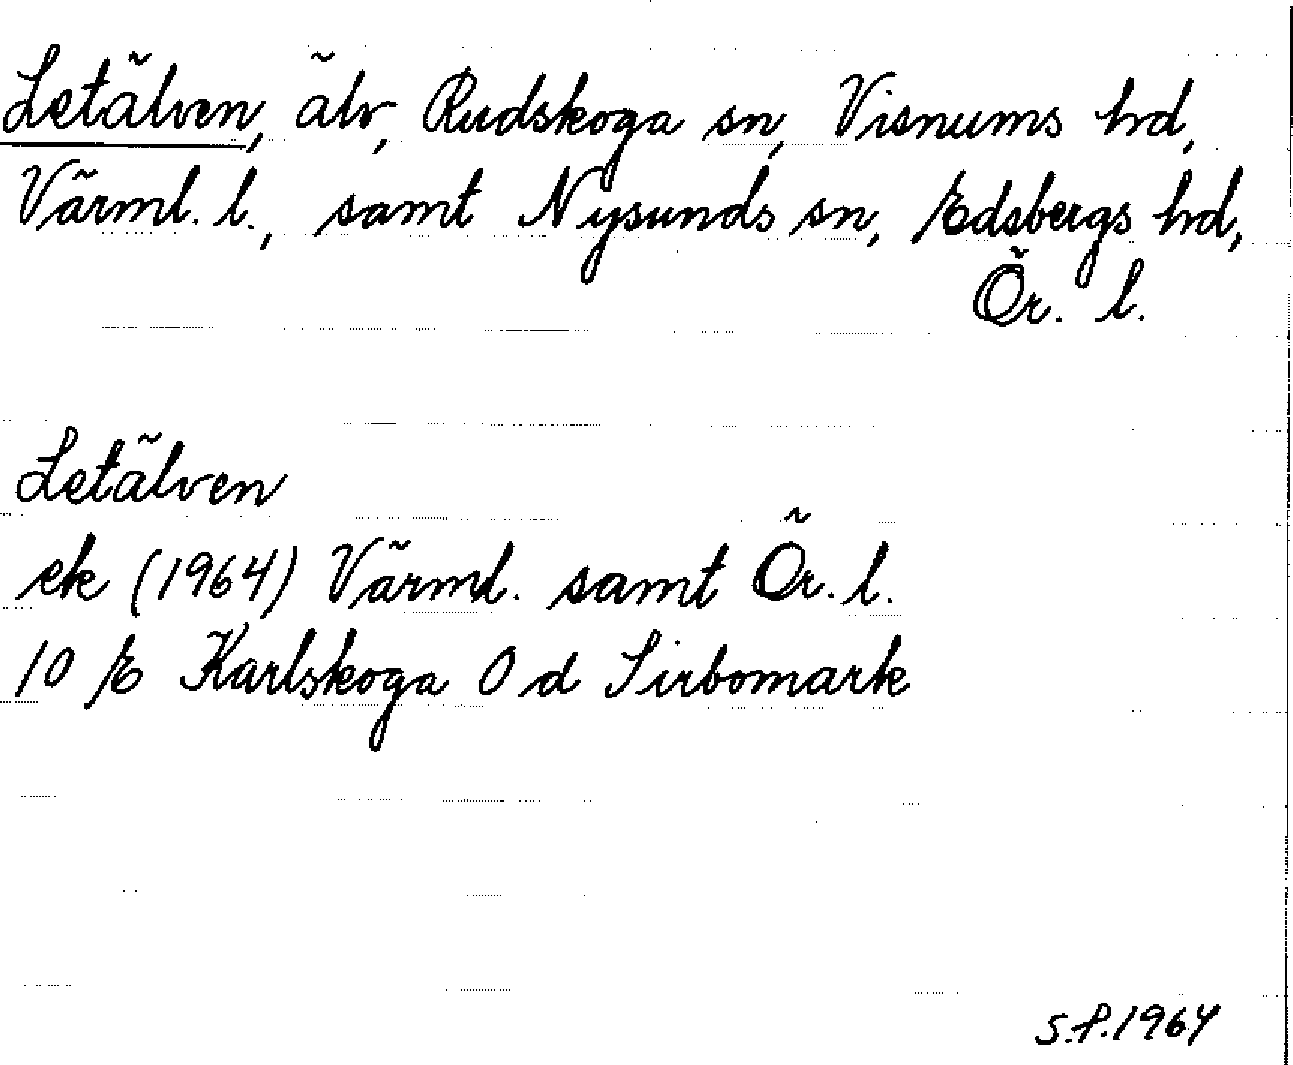 Letälven, älv, Rudskoga sn, Visnums hd,
Värml. l., samt Nysunds sn, Edsbergs hd,
Ör. l.
Letälven
ek (1964) Värml. samt Ör. l.
10 E Karlskoga O d Sirbomark
S.P.1964